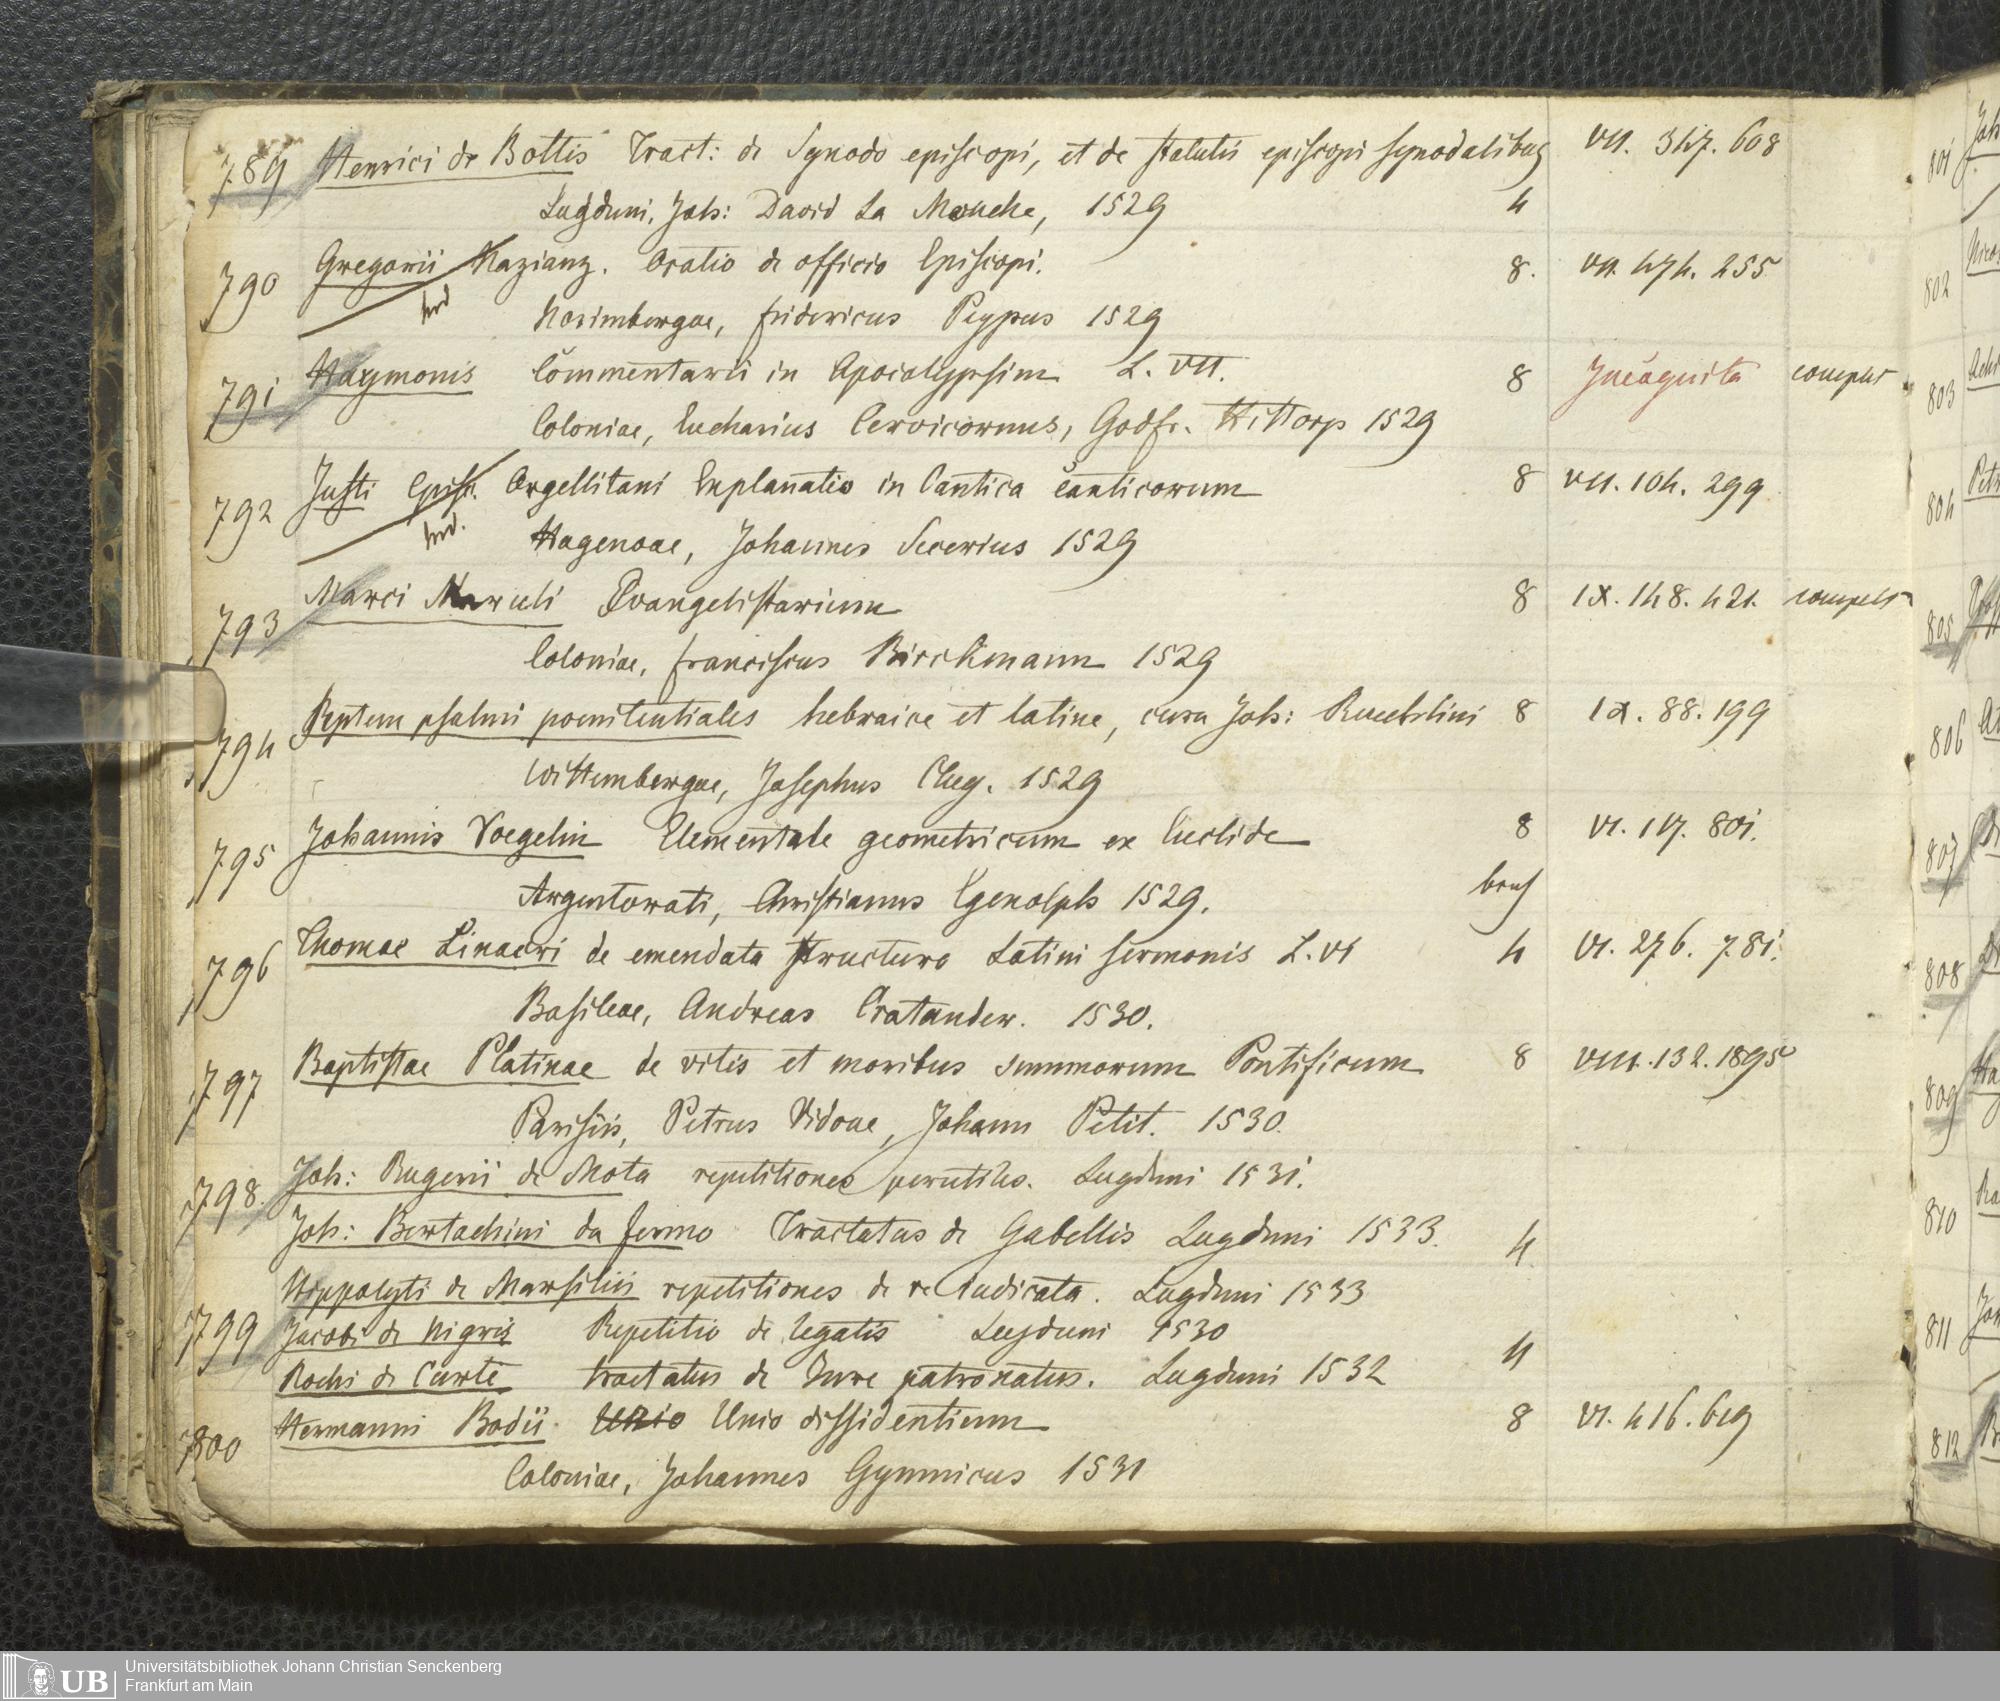 789 Henrici de Bottis Tract: de Synodo episcopi, et de statutis episcopi synodalibus VII. 347. 608
Lugduni, Joh: David La Mouche, 1529 4
790 Gregorii Nazianz. Oratio de officio Episcopi. 8. VII. 474. 255
Norimbergae, Fridericus Peypus 1529
791 Haymonis Commentarii in Apocalypsim L. VII. 8 Incognita complet
Coloniae, Eucharius Cervicornus, Godfr. Hittorp 1529
792 Justi Episc. Orgellitani Explanatio in Cantica canticorum 8 VII. 104. 299
Hagenoae, Johannes Secerius 1529
793 Marci Maruli Evangelistarium 8 IX. 148. 421. complet
Coloniae, Franciscus Birckmann 1529
794 Septem psalmi poenitentiales hebraice et latine, cura Joh: Reuchlini 8 IX. 88. 199
Wittembergae, Josephus Clug. 1529
795 Johannis Voegelin Elementale geometricum ex Euclide 8 VI. 117. 801.
Argentorati, Christianus Egenolph 1529. broch
796 Thomae Linacri de emendata structura Latini sermonis L. VI 4 VI. 276. 781.
Basileae, Andreas Cratander. 1530.
797 Baptistae Platinae de vitis et moribus summorum Pontificum 8 VIII. 132. 1895
Parisiis, Petrus Vidoue, Johann Petit. 1530.
798. Joh: Rugerii de Mota repetitiones perutiles. Lugduni 1531.
Joh: Bertachini da fermo Tractatus de Gabellis Lugduni 1533. 4.
799 Hippolyti de Marsiliis repetitiones de re iudicata. Lugduni 1533
Jacobi de Nigris Repetitio de legatis Lugduni 1530 4
Rochi de Curte tractatus de Jure patronatus. Lugduni 1532
800 Hermanni Bodii. Unio Unio dissidentium 8 VI. 416. 619
Coloniae, Johannes Gymnicus 1531
801
802
803
804
805
806
807
808
809
810
811
812
UB Universitätsbibliothek Johann Christian Senckenberg
Frankfurt am Main